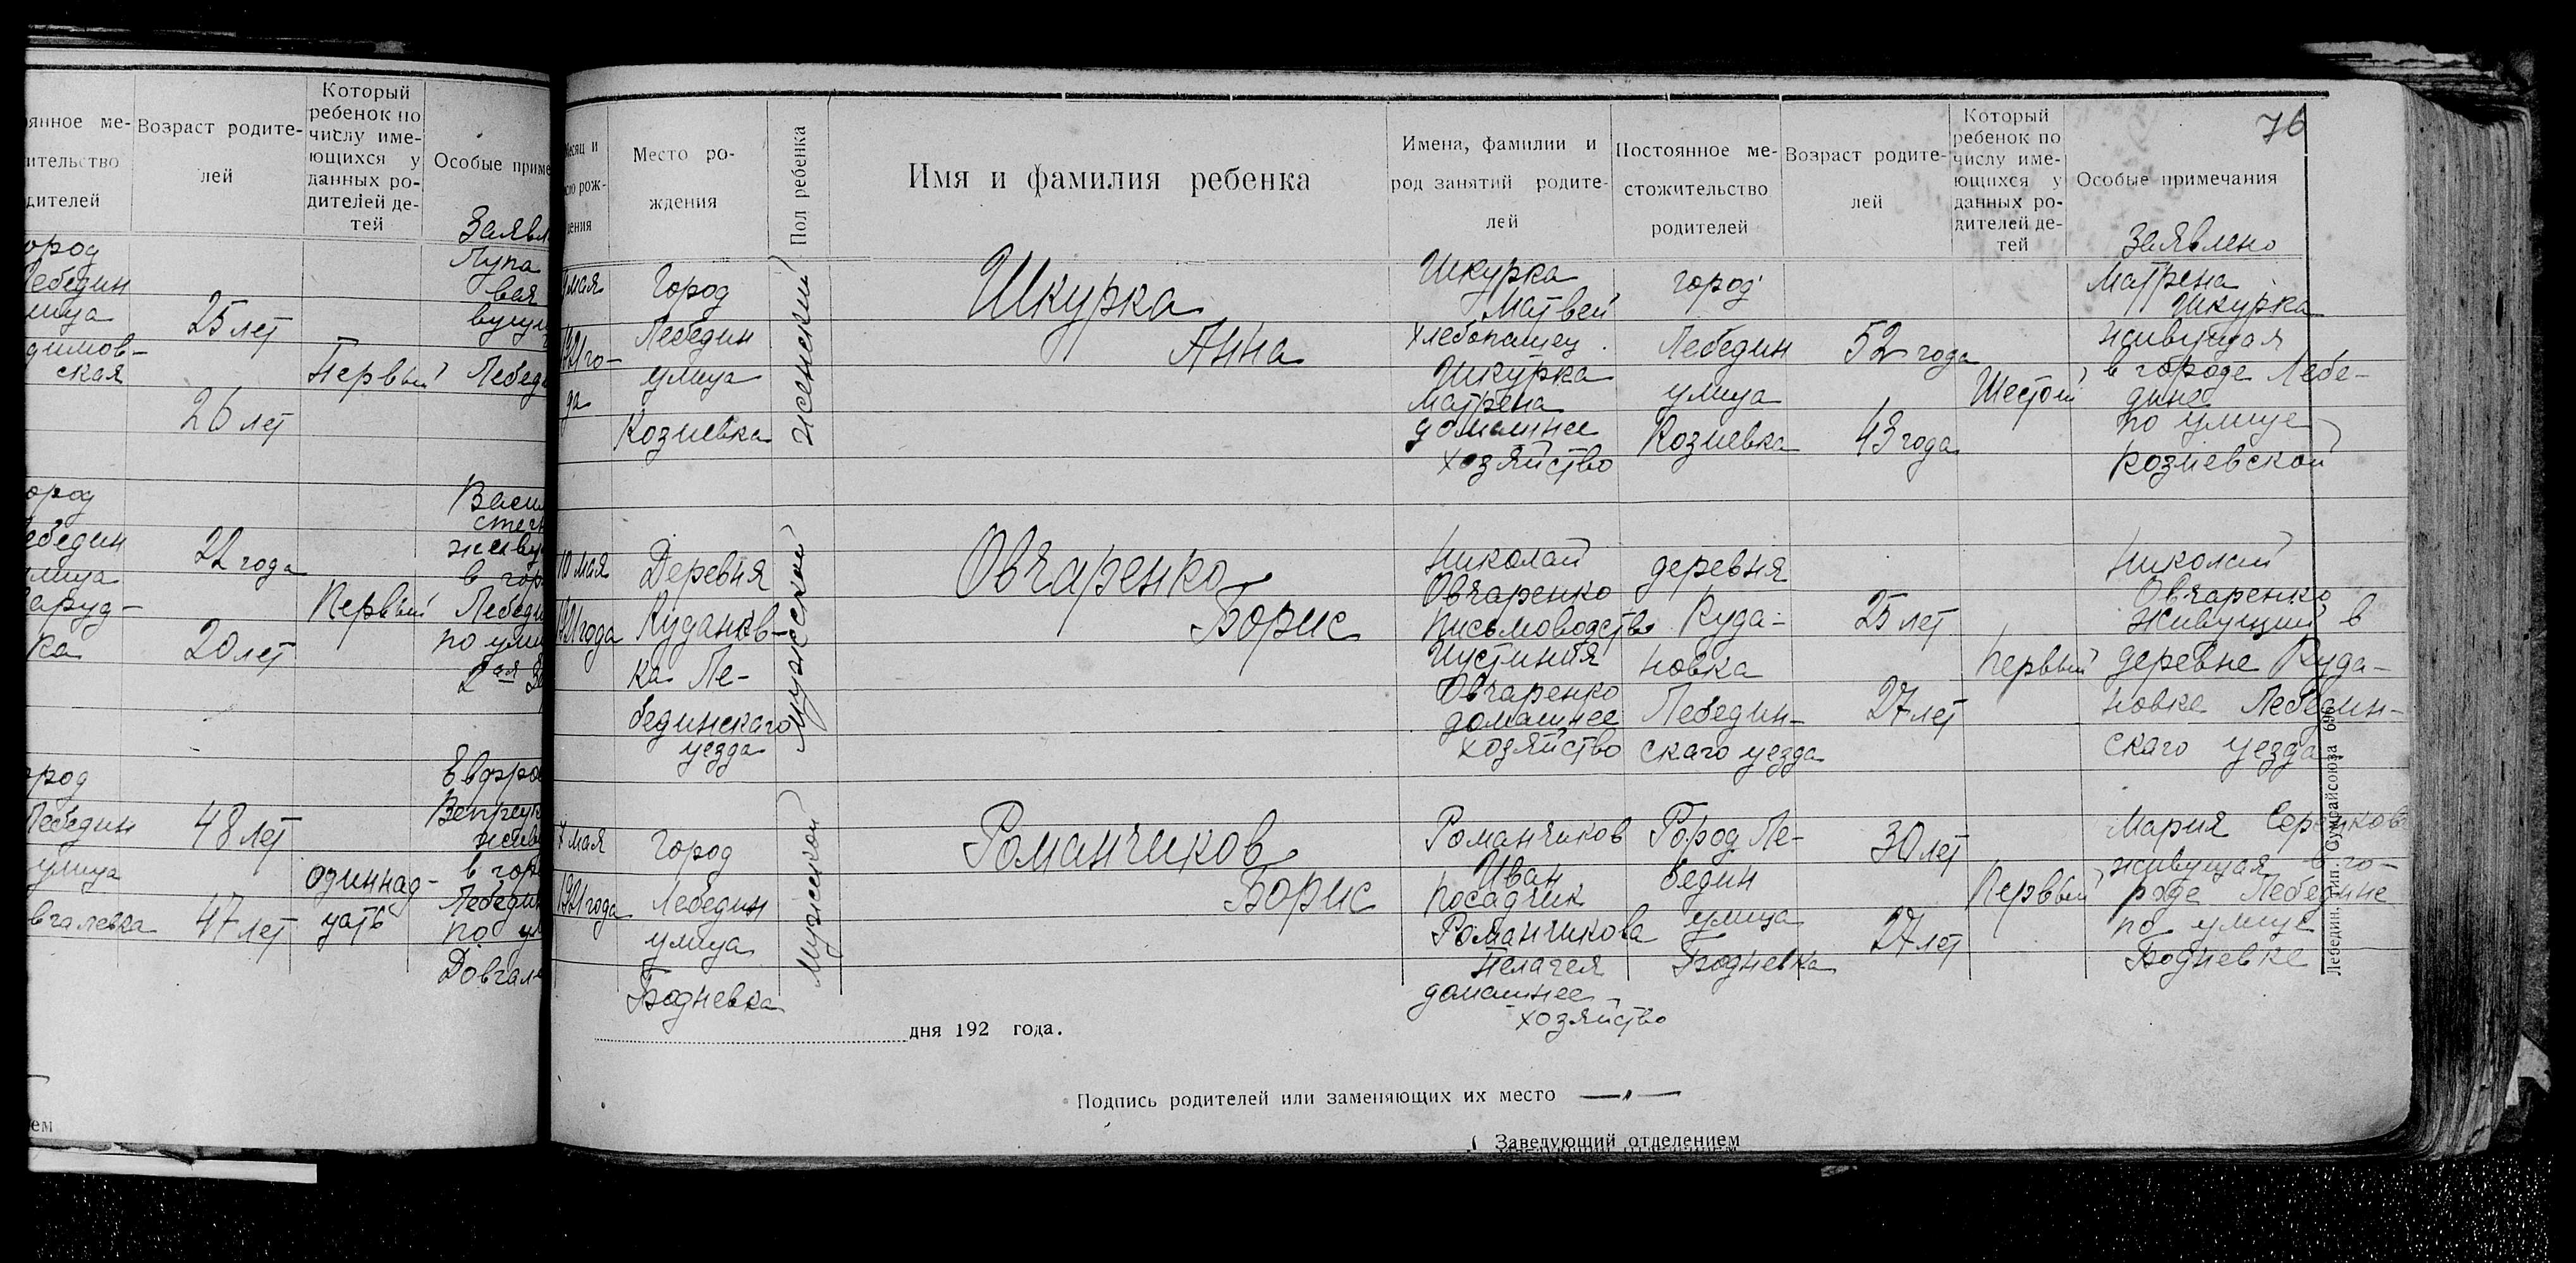 Который
ребенок по
янное ме- Возраст родите- числу име-
ющихся у Особые приме
ительство лей данных ро-
дителей дителей де-
тей
Заявл
ород Лупа
Лебедин вая
лица 25 лет
димов-
ская Первый Лебед
26 лет
ород Васи
ебедин 22 года
лица в гор
Заруд- Первый Лебеди
ка 20 лет по ули
2ая
ород Евфро
Лебедин 48 лет
улица одиннад- в горо
вгалевка 47 лет цать Лебедин
по ул
Довгал
ем
76
Месяц и
Место ро-
ждения
Пол ребенка
Имя и фамилия ребенка
Имена, фамилии и
род занятий родите-
лей
Постоянное ме-
стожительство
родителей
Возраст родите-
лей
Который
ребенок по
числу име-
ющихся у
данных ро-
дителей де-
тей
Особые примечания
мая
1921 го-
да
Город
Лебедин
улица
Козиевка
женский
Шкурка
Анна
Шкурка
Матвей
хлебопашец
Шкурка
Матрена
домашнее
хозяйство
город
Лебедин
улица
Козиевка
52 года
43 года
Шестой
Заявлено
Матрена
Шкурка
живущая
в городе Лебе-
дине
по улице
Козиевской
10 мая
1921 года
Деревня
Куданов-
ка Ле-
бединскаго
уезда
мужской
Овчаренко
Борис
Николай
Овчаренко
письмоводство
Иустиния
Овчаренко
домашнее
хозяйство
деревня
Куда-
новка
Лебедин-
скаго уезда
25 лет
27 лет
Первый
Николай
Овчаренко
живущий в
деревне Куда-
новке Лебедин-
скаго уезда
мая
1921 года
город
Лебедин
улица
Бодневка
мужской
Романчиков
Борис
Романчиков
Иван
посадчик
Романчикова
Пелагея
домашнее
хозяйство
Город Ле-
бедин
улица
Бодневка
30 лет
27 лет
Первый
Мария
живущая в го-
роде Лебедине
по улице
Бодневке
дня 192 года.
Подпись родителей или заменяющих их место
Заведующий отделением
Лебедин. тип. Сумрайсоюза 696